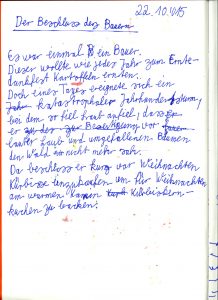 22.10.415
Der Beschluss des Bauern
Es war einmal ein Bauer.
Dieser wollte wie jedes Jahr zum Ernte-
dankfest Kartoffeln ernten.
Doch eines Tages ereignete sich ein
katastrophaler Jahrhundertsturm,
bei dem so viel Laub anfiel, dass
er vor
lauter Laub und umgefallenen Bäumen
den Wald nicht mehr sah.
Da beschloss er kurz vor Weihnachten
Kürbisse einzukaufen um für Weihnachten
am warmen Kamin Kürbiskern-
kuchen zu backen.